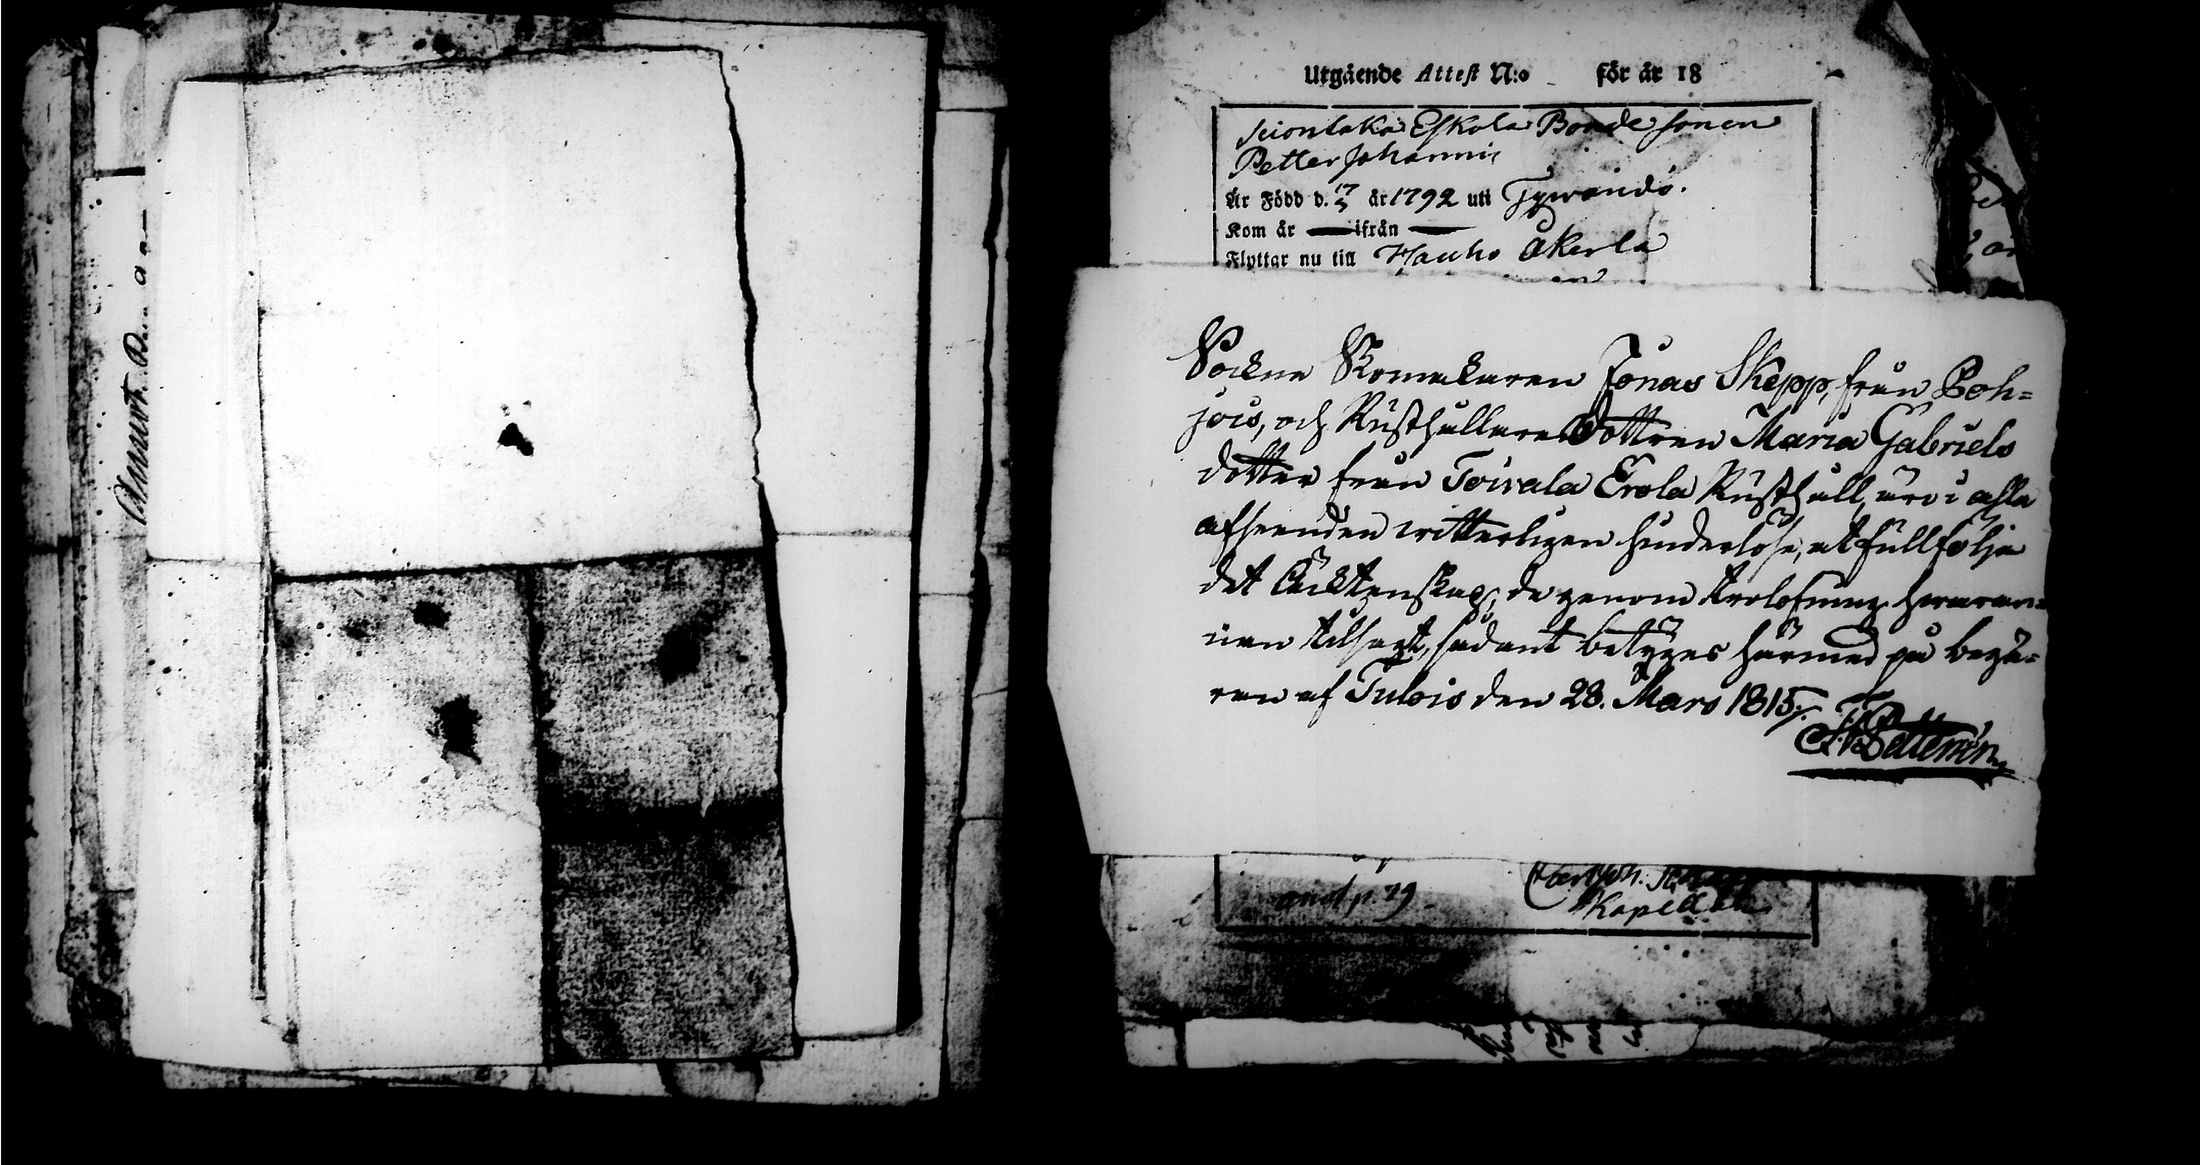 Utgående Attest N:o för år 18
Seionlaka Eskola Bonde sonen
Petter Johannis
Är Född d. 17/5 år 1792 uti Tyrvändö.
Kom år — ifrån —
Flyttar nu till Hauho Åkerla
Sockne Skomakaren Jonas Skepp, från Poh=
jois, och Rusthållare Dottren Maria Gabriels
dotter från Toivala Erola Rusthåll, äro i alla
afseenden witterligen hinderlöse, at fullfölja
det Äcktenskap, de genom trolofning hwaran=
nan tilsagt, sådant betyges härmed på begä=
ran af Tulois den 28. Mars 1815.
and. p. 79
Kapellan